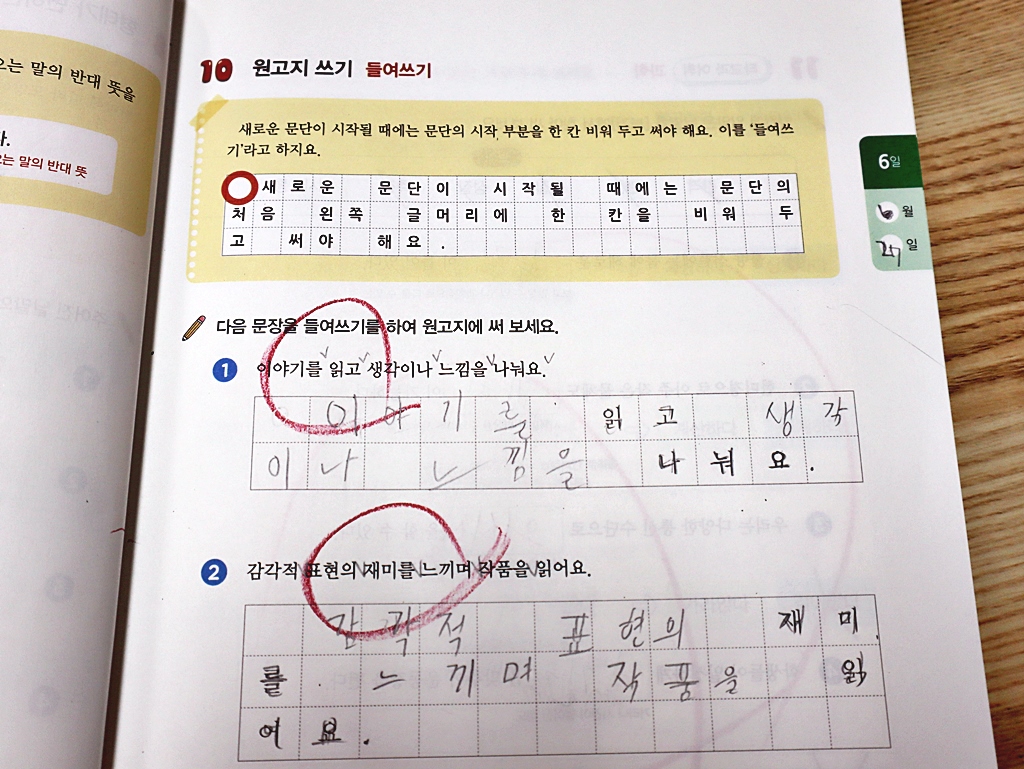 오는 말의 반대 뜻을
다.
오는 말의 반대 뜻
10 원고지 쓰기 들여쓰기
새로운 문단이 시작될 때에는 문단의 시작 부분을 한 칸 비워 두고 써야 해요. 이를 '들여쓰
기'라고 하지요.
새로운 문단이 시작될 때에는 문단의
처음 왼쪽 글머리에 한 칸을 비워 두
고 써야 해요.
6일
6월
27일
다음 문장을 들여쓰기를 하여 원고지에 써 보세요.
1 이야기를 읽고 생각이나 느낌을 나눠요.
이야기를 읽고 생각
이나 느낌을 나눠요.
2 감각적 표현의 재미를 느끼며 작품을 읽어요.
감각적 표현의 재미
를 느끼며 작품을 읽
어요.